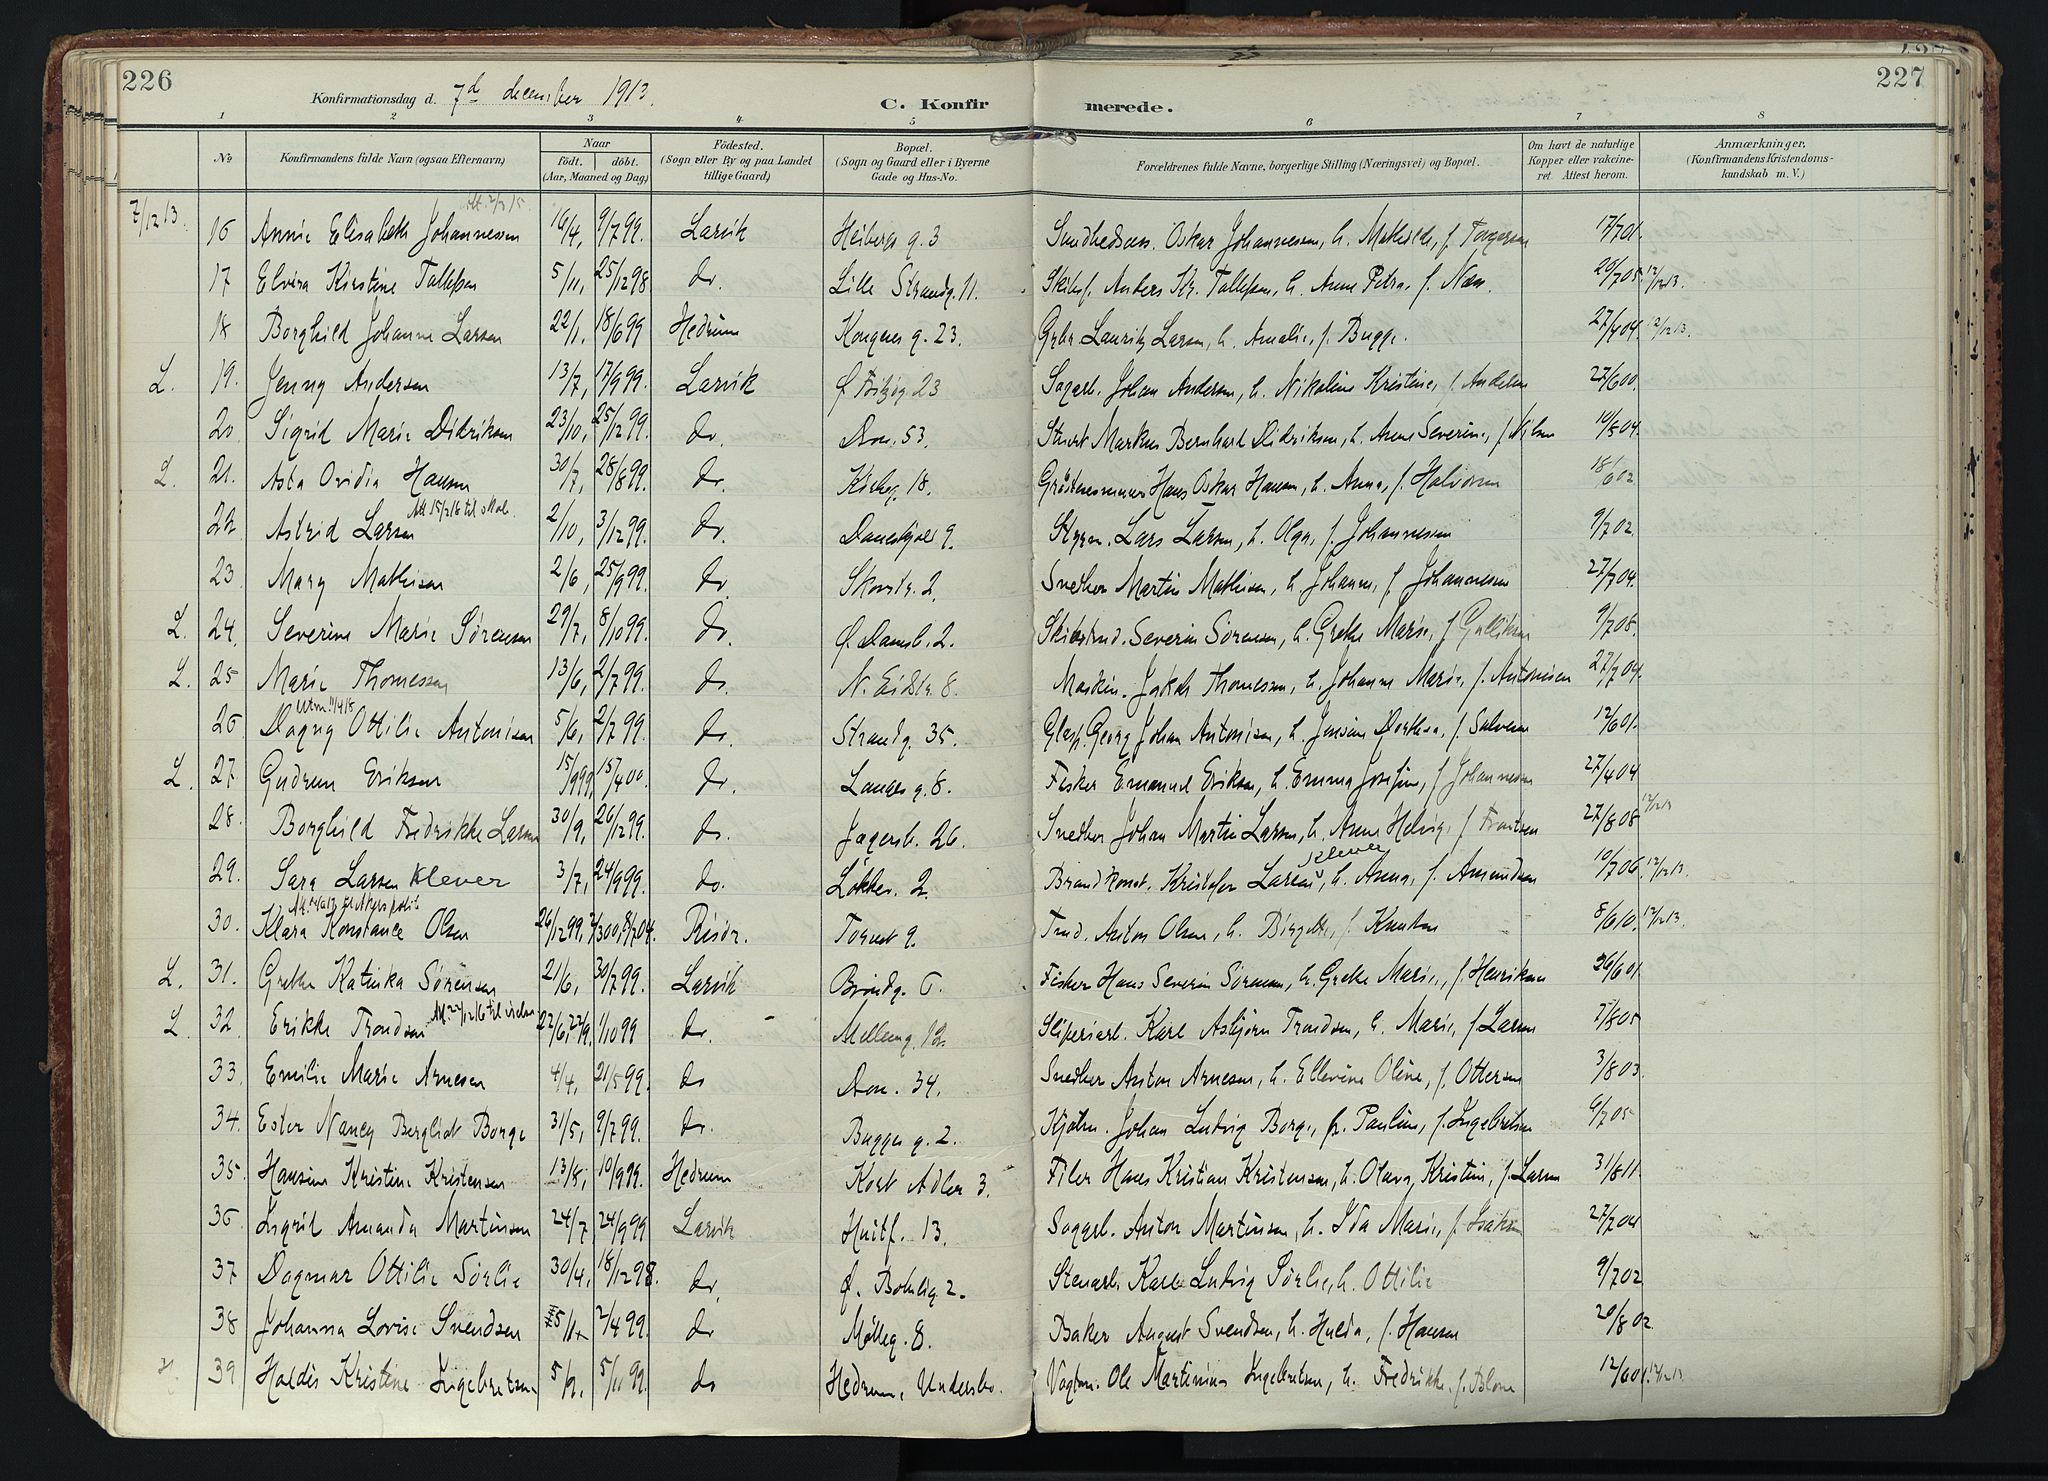 226
Konfirmationsdag d. 7de december 1913.
C. Konfirmerede.
227
1 2 3 4 5 6 7 8
No. Konfirmandens fulde Navn (ogsaa Efternavn) Naar født, døbt. (Aar, Maaned og Dag) Fødested. (Sogn eller By og paa Landet tillige Gaard) Bopæl. (Sogn og Gaard eller i Byerne Gade og Hus-No. Forældrenes fulde Navne, borgerlige Stilling (Næringsvei) og Bopæl. Om havt de naturlige Kopper eller vakcineret. Attest herom. Anmærkninger. (Konfirmandens Kristendomskundskab m. V.)
7/12 13. 16 Annie Elisabeth Johannessen 16/4, 9/7 99. Larvik Heibergs g. 3 Oskar Johannessen, h. Mathilde, f. 17/7 01.
17 Elvira Kirstine Tallefsen 5/11, 25/12 98 do. Lille Strandg. 11. Anders Kr. Tallefsen, h. Anne Petra, f. Næss. 20/7 05. 12/12 13.
18 Borghild Johanne Larsen 22/1, 18/6 99 Hedrum Kongens g. 23. Lauritz Larsen, h. Amalie, f. Bugge. 27/4 04. 12/12 13.
L. 19. Jenny Andersen 13/7, 17/9 99. Larvik 23 Sagarb. Johan Andersen, h. Nikoline Kristine, f. Andersen 27/6 00.
20. Sigrid Marie Didriksen 23/10, 25/12 99. do. Dron. 53. Markus Bernhard Didriksen, h. Anne Severine, f. Nilsen 10/8 04.
L. 21. Asta Ovidia Hansen 30/7, 28/8 99. do. Kirkeg. 18. Hans Oskar Hansen, h. Anna, f. Halvorsen 18/6 02
22. Astrid Larsen 2/10, 3/12 99. do. g. Styrm. Lars Larsen, h. Olga, f. Johannessen 9/7 02.
23. Mary Mathisen 2/6, 25/9 99. do. 2. Snedker Martin Mathisen, h. Johanne, f. Johannessen 27/7 04.
L. 24. Severine Marie Sørensen 29/7, 8/10 99. do. 2. Severin Sørensen, h. Grethe Marie, f. Gulliksen 9/7 08.
L. 25 Marie Thomessen 13/6, 2/7 99. do. 8. Maskin. Jakob Thomessen, h. Johanne Marie, f. Antonisen 27/7 04.
26 Dagny Ottilie Antonisen 5/6, 2/7 99. do. Strandg. 35. Georg Johan Antonisen, h. Jensine Dorthea, f. Salvesen 12/6 01.
L. 27 Gudrun Eriksen 15/9 99, 15/4 00. do. Langes g. 8. Fisker Emanuel Eriksen, h. Emma Josefine, f. Johannesen 27/4 04
28. Borghild Fredrikke Larsen 30/9, 26/12 99. do. Jegersb. 26. Snedker Johan Martin Larsen, h. Anne Helvig, f. Frantsen 27/8 08 12/12 13
29. Sara Larsen Klever 3/7, 24/9 99. do. Løkkeg. 2. Brandkonst. Kristofer Larsen Klever, h. Anna, f. Amundsen 10/7 06. 12/12 13.
30. Klara Konstance Olsen 26/12 99, Risør. Torvet 9. Anton Olsen, h. Birgitte, f. Knutsen 8/6 10. 12/12 13.
L. 31. Grethe Katinka Sørensen 21/6, 30/7 99. Larvik 6. Fisker Hans Severin Sørensen, h. Grethe Marie, f. Henriksen 26/6 01
L. 32. Erikke Trondsen 22/6, do. Mellemg. 12. Sliperiarb. Karl Asbjørn Trondsen, h. Marie, f. Larsen 7/8 05
33. Emilie Marie Arnesen 4/4, 21/5 99. do Dron. 34. Snedker Anton Arnesen, h. Ellevine Oline, f. Ottersen 3/8 03.
34. Ester Nancy Bergliot Borge 31/5, 9/7 99. do. Bugges g. 2. Kjøbm. Johan Ludvig Borge, h. Pauline, f. Ingebretsen 9/7 05
35. Hansine Kristine Kristensen 13/8, 10/9 99. Hedrum Kort Adler 3. Filer Hans Kristian Kristensen, h. Olava Kristine, f. Larsen 31/8 11.
36. Ingrid Amanda Martinsen 24/7, 24/9 99 Larvik Huitf. 13. Saggarb. Anton Martinsen, h. Ida Marie, f. Isaksen 27/7 04
37 Dagmar Ottilie Sørlie 30/4, 18/12 98. do. 2. Stenarb. Karl Ludvig Sørlie, h. Ottilie 9/7 02
38 Johanna Lovise Svendsen 2/4 99. do Mølleg. 8. Baker August Svendsen, h. Hulda, f. Hansen 20/8 02.
39 Haldis Kristine Ingebretsen 5/9, 5/11 99. do Hedrum, Undersbo. Vogtm. Ole Martinius Ingebretsen, h. Fredrikke, 12/6 01. 12/12 13